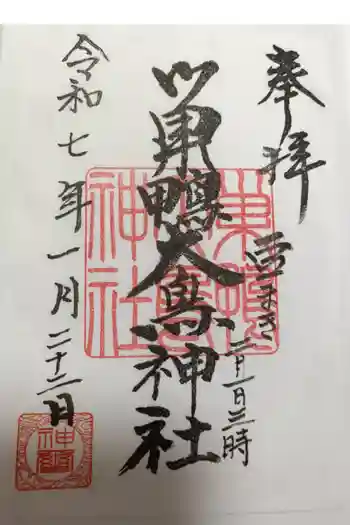 奉拝
豆まき
二月一日三時
巣鴨大鳥神社
令和七年一月二十二日
巣鴨
大鳥
神社